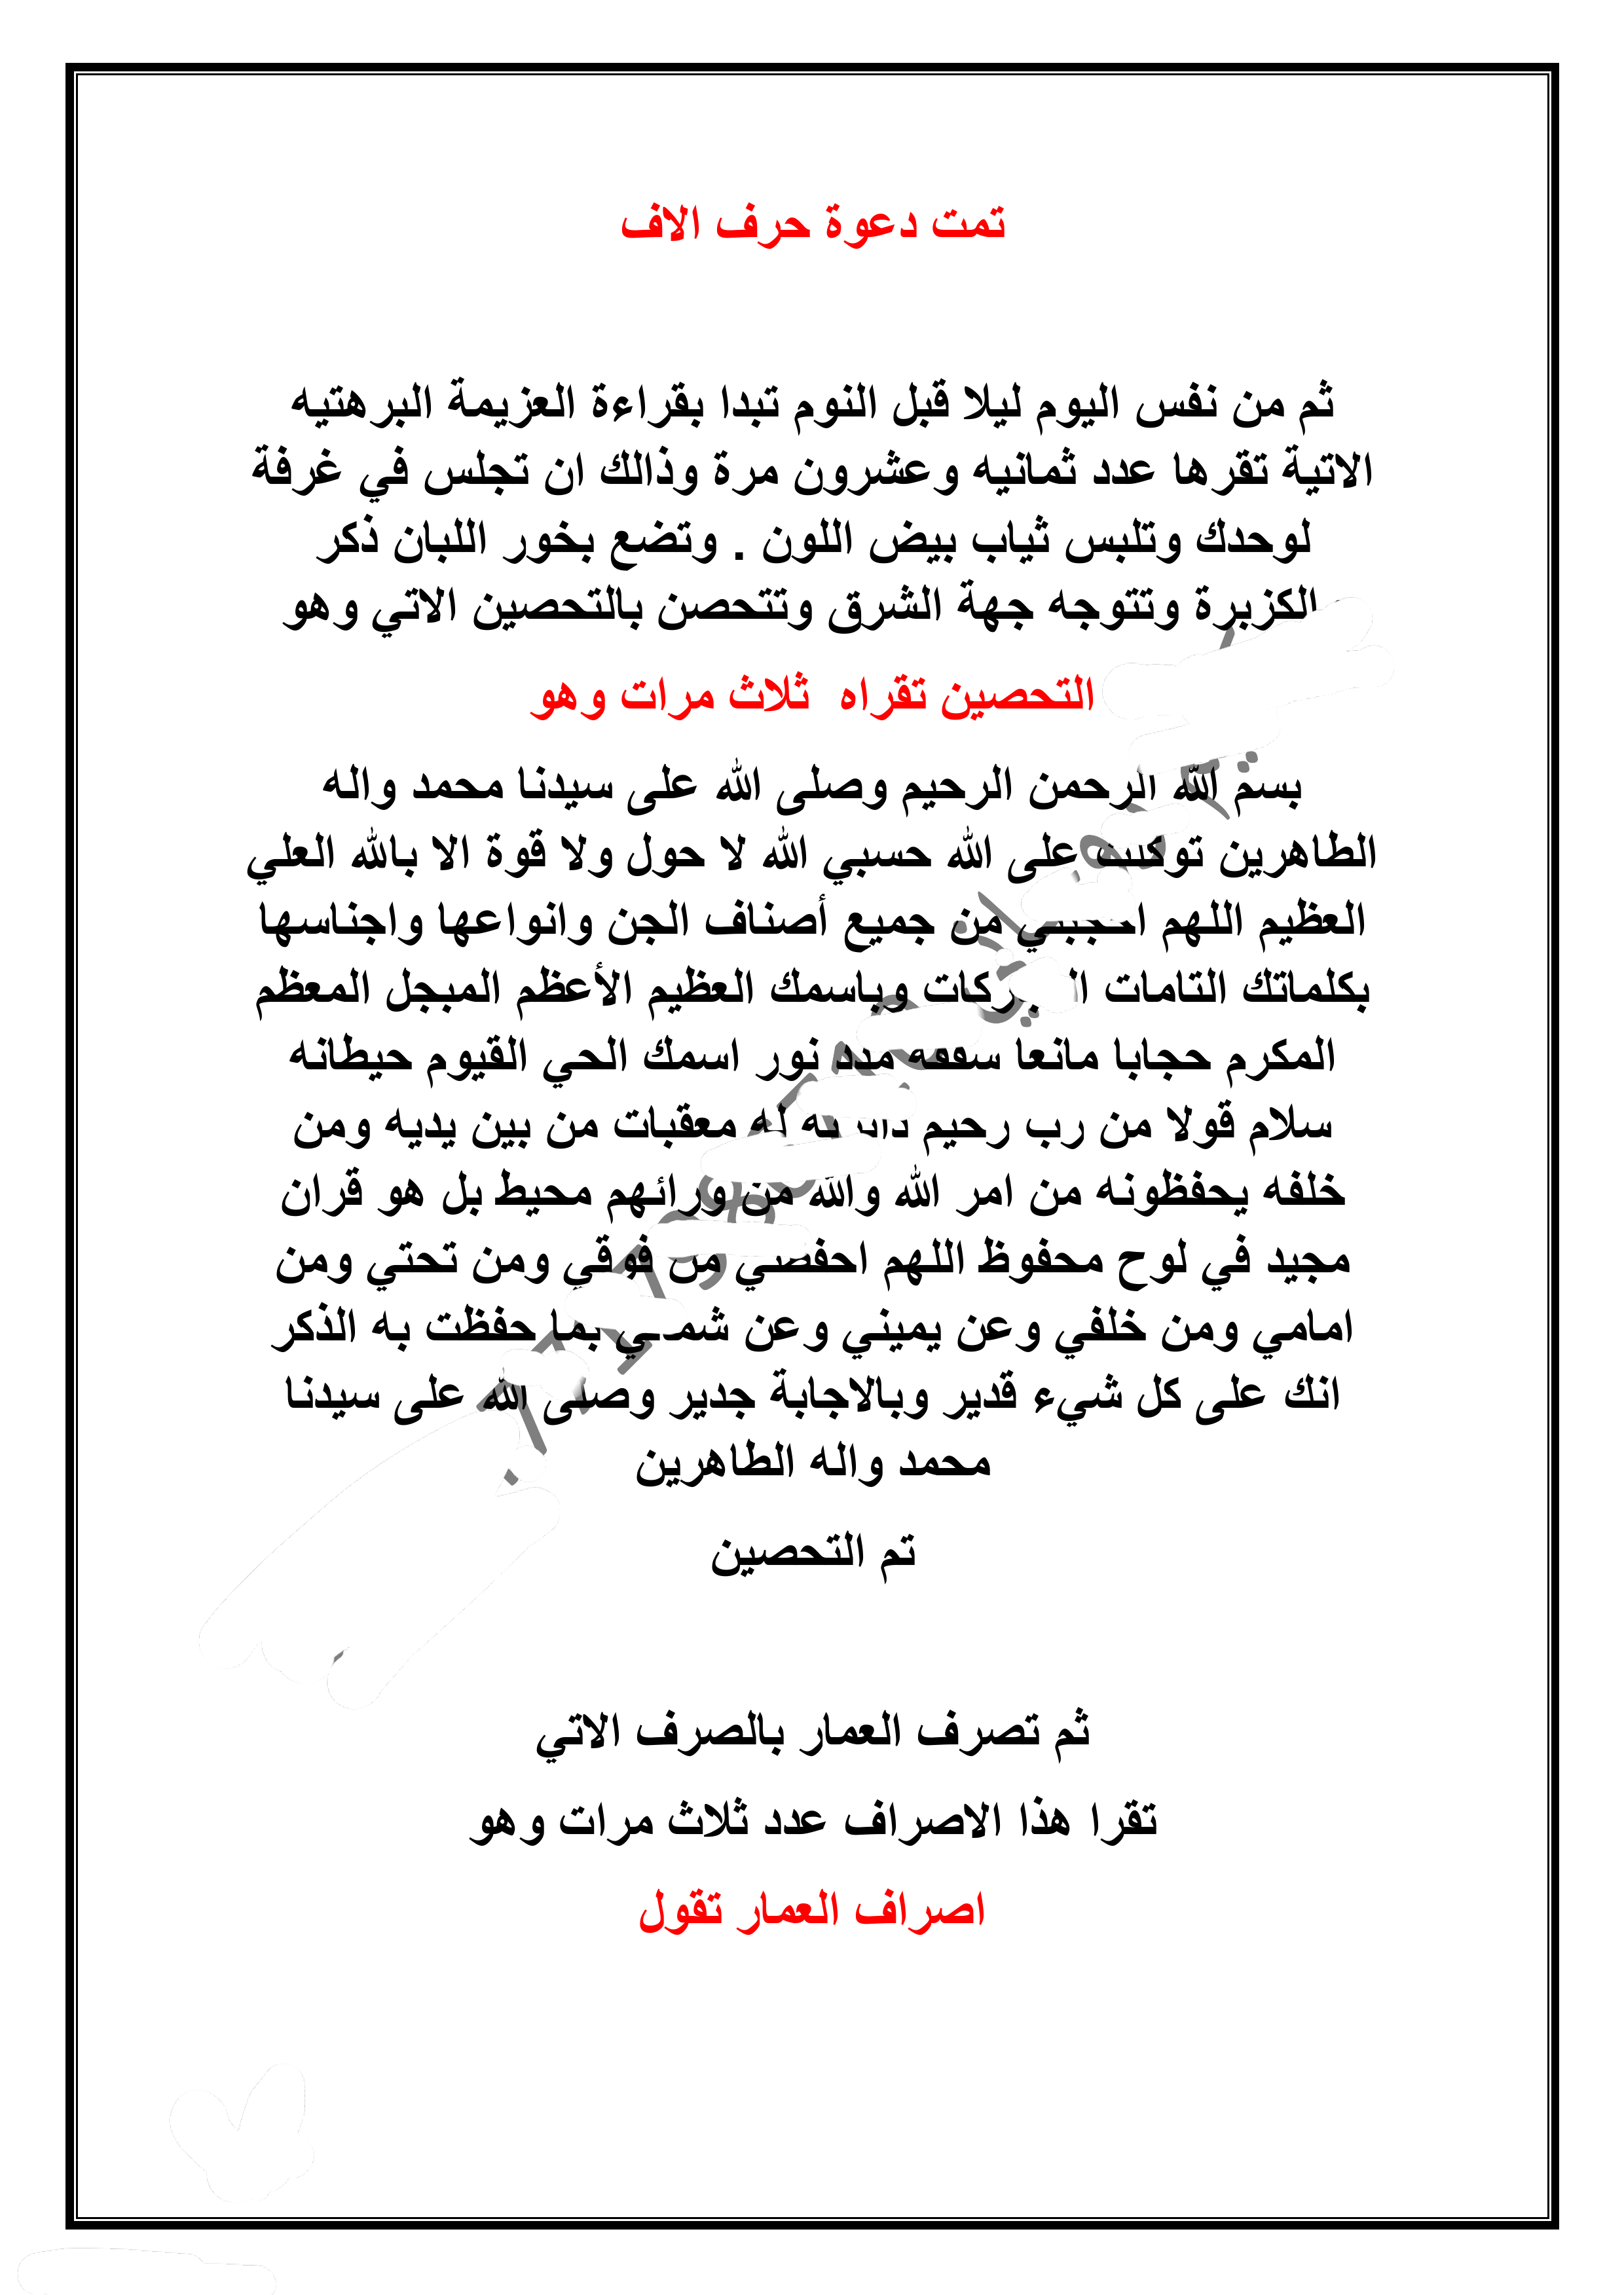 تمت دعوة حرف الاف
ثم من نفس اليوم ليلا قبل النوم تبدا بقراءة العزيمة البرهتيه
الاتية تقرها عدد ثمانيه وعشرون مرة وذالك ان تجلس في غرفة
لوحدك وتلبس ثياب بيض اللون . وتضع بخور اللبان ذكر
الكزبرة وتتوجه جهة الشرق وتتحصن بالتحصين الاتي وهو
التحصين تقراه ثلاث مرات وهو
بسم الله الرحمن الرحيم وصلى الله على سيدنا محمد واله
الطاهرين توكلت على الله حسبي الله لا حول ولا قوة الا بالله العلي
العظيم اللهم من جميع أصناف الجن وانواعها واجناسها
بكلماتك التامات وباسمك العظيم الأعظم المبجل المعظم
المكرم حجابا مانعا مدد نور اسمك الحي القيوم حيطانه
سلام قولا من رب رحيم له معقبات من بين يديه ومن
خلفه يحفظونه من امر الله والله من ورائهم محيط بل هو قران
مجيد في لوح محفوظ اللهم من فوقي ومن تحتي ومن
امامي ومن خلفي وعن يميني وعن بما حفظت به الذكر
انك على كل شيء قدير وبالاجابة جدير وصلى الله على سيدنا
محمد واله الطاهرين
تم التحصين
ثم تصرف العمار بالصرف الاتي
تقرا هذا الاصراف عدد ثلاث مرات وهو
اصراف العمار تقول